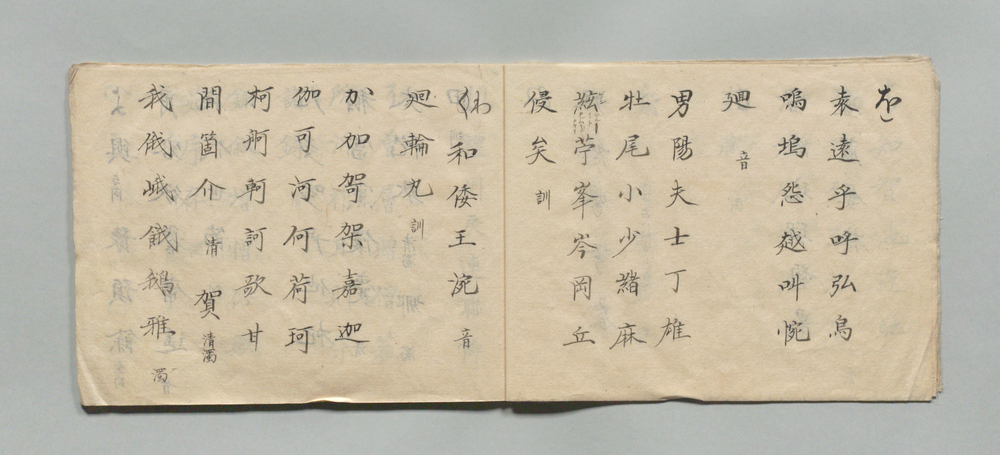 を
袁遠乎呼弘烏
嗚塢怨越叫惋
廻 音
男陽夫士丁雄
牡尾小少緒麻
苧峯岑岡丘
侵矣 訓
わ
和倭王涴 音
廻輪丸 訓
か 加賀架嘉迦
伽可河何荷珂
柯舸軻訶歌甘
間箇介 清 賀 清濁
我俄峨餓鵝雅 濁